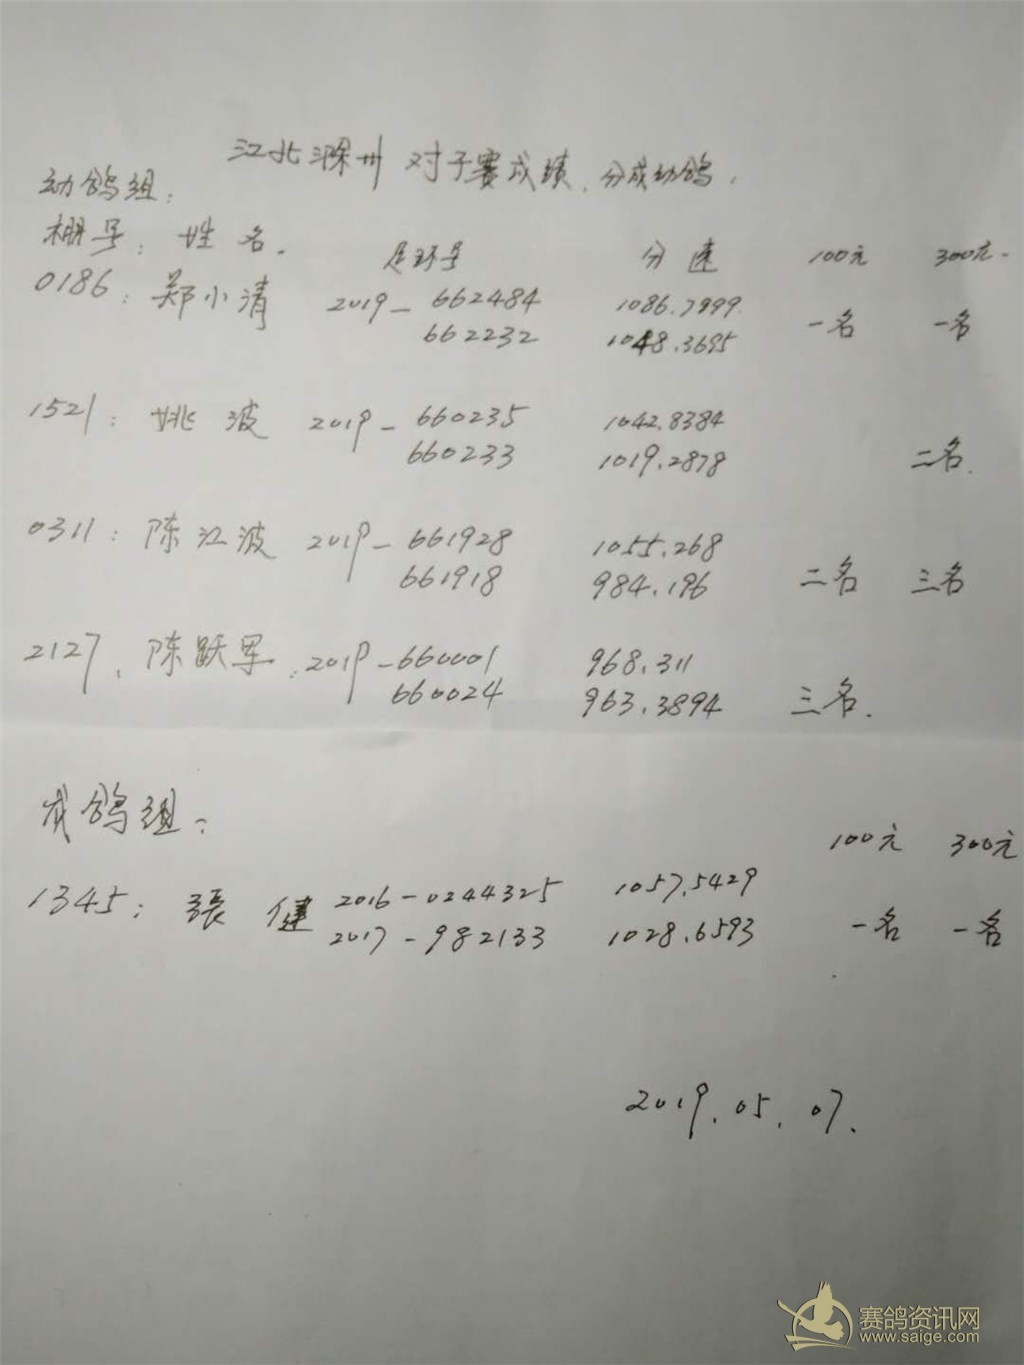 江北滁州 对子赛成绩. 分成幼鸽.
幼鸽组:
棚号: 姓名. 足环号 分速 100元 300元
0186: 郑小清 2019-662484 1086.7999
662232 1048.3695 一名 一名
1521: 姚波 2019-660235 1042.8384
660233 1019.2878 二名.
0311: 陈江波 2019-661928 1055.268
661918 984.196 二名 三名
2127. 陈跃军: 2019-660001 968.311
660024 963.3894 三名.
成鸽组:
100元 300元
1345: 張健 2016-0244325 1057.5429
2017-982133 1028.6593 一名 一名
2019.05.07.
赛鸽资讯网
www.saige.com